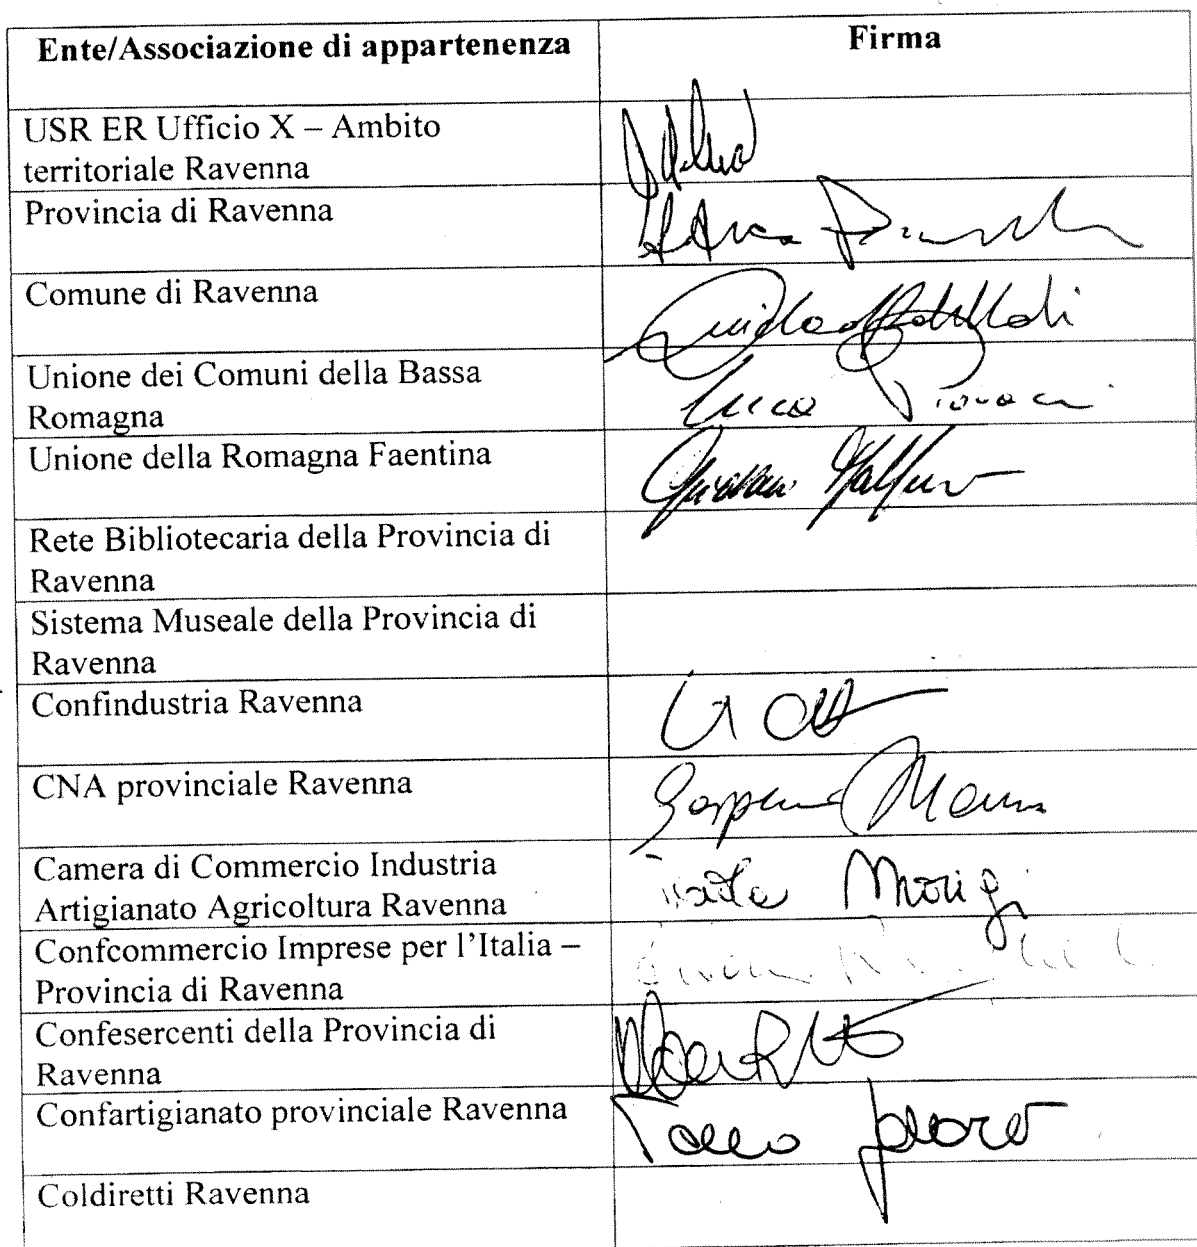 Ente/Associazione di appartenenza
Firma
USR ER Ufficio X – Ambito
territoriale Ravenna
Provincia di Ravenna
Comune di Ravenna
Guido
Unione dei Comuni della Bassa
Romagna
Luca
Unione della Romagna Faentina
Rete Bibliotecaria della Provincia di
Ravenna
Sistema Museale della Provincia di
Ravenna
Confindustria Ravenna
CNA provinciale Ravenna
Camera di Commercio Industria
Artigianato Agricoltura Ravenna
Morigi
Confcommercio Imprese per l'Italia –
Provincia di Ravenna
Confesercenti della Provincia di
Ravenna
Confartigianato provinciale Ravenna
Coldiretti Ravenna